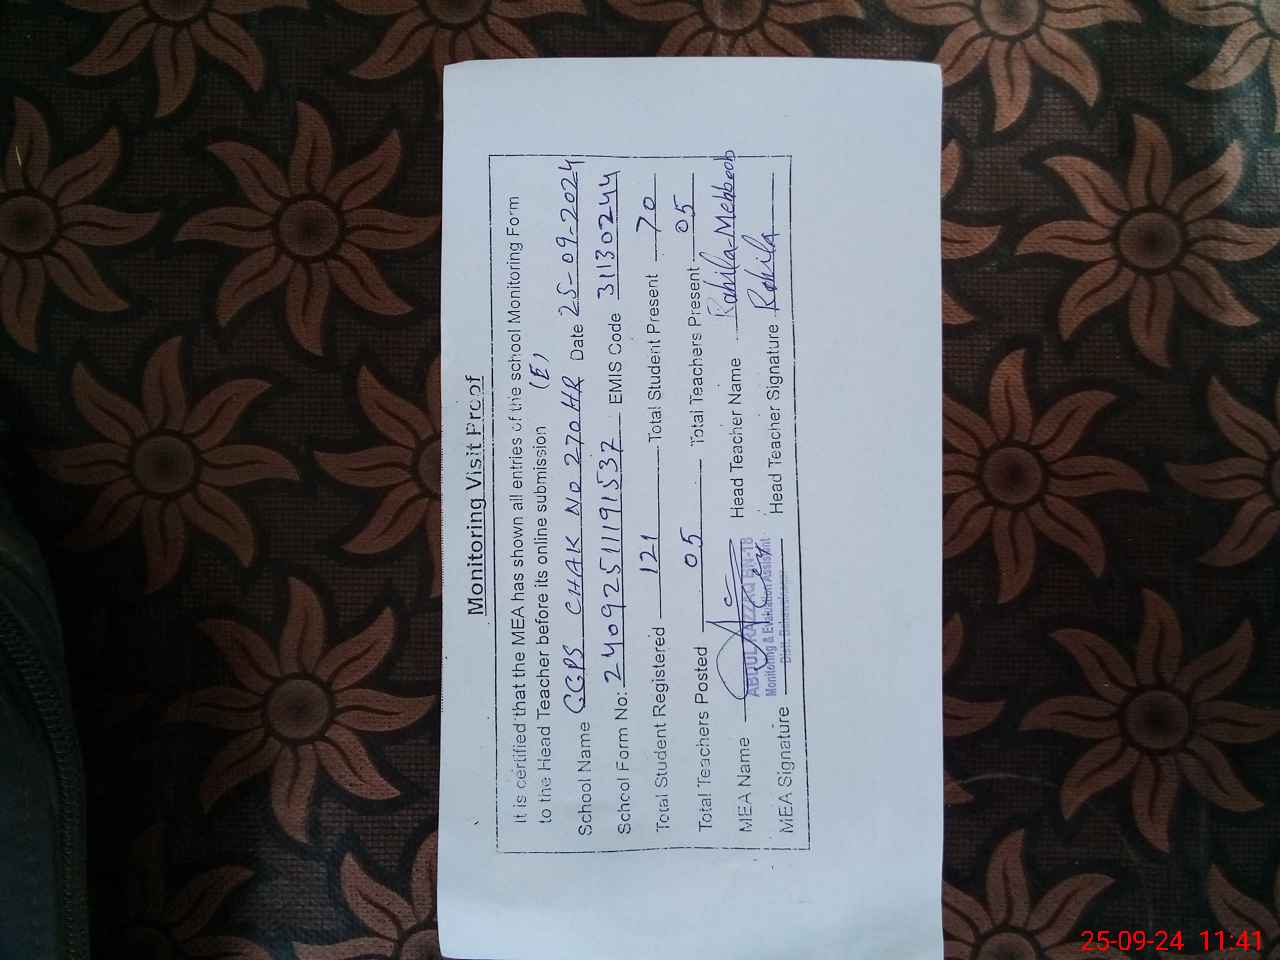 Monitoring Visit Proof
It is certified that the MEA has shown all entries of the school Monitoring Form
to the Head Teacher before its online submission (E)
School Name GGPS CHAK NO 270 HR Date 25-09-2024
School Form No: 240925111191537 EMIS Code 31130244
Total Student Registered 121 Total Student Present 70
Total Teachers Posted 05 Total Teachers Present 05
MEA Name Head Teacher Name Rahila Mehboob
ABDUL RAZZAQ BN-18
Monitoring & Evaluation Assistant
MEA Signature Head Teacher Signature Rahila
25-09-24 11:41